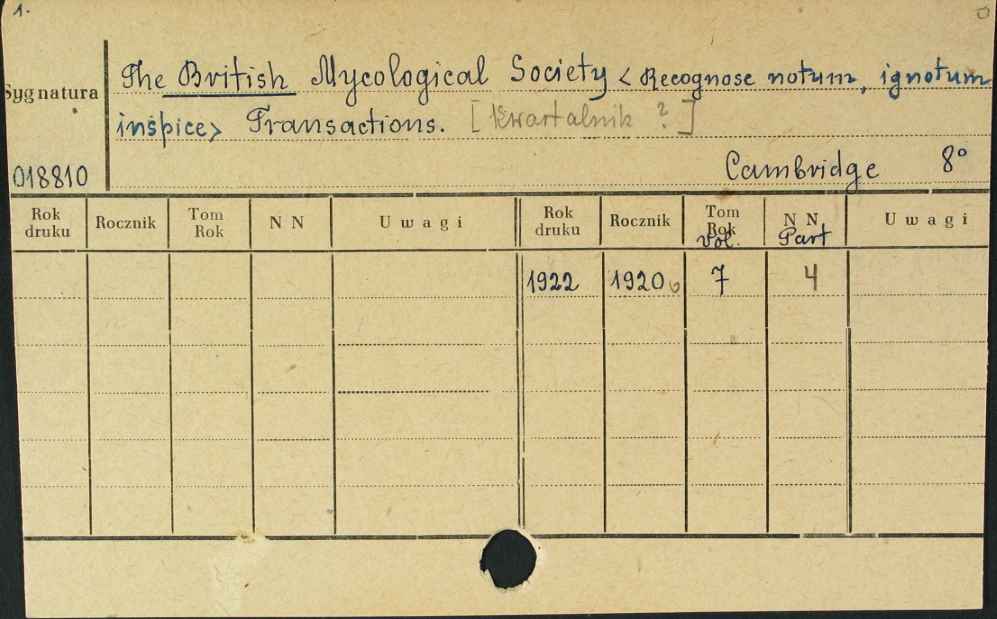 1.
The British Mycological Society < Recognose notum, ignotum
Sygnatura
inspice> Transactions. [Kwartalnik ?]
018810
Cambridge 8°
Rok druku Rocznik Tom Rok N N Uwagi Rok druku Rocznik Tom Rok N N Uwagi
vol. Part
1922 1920 7 4